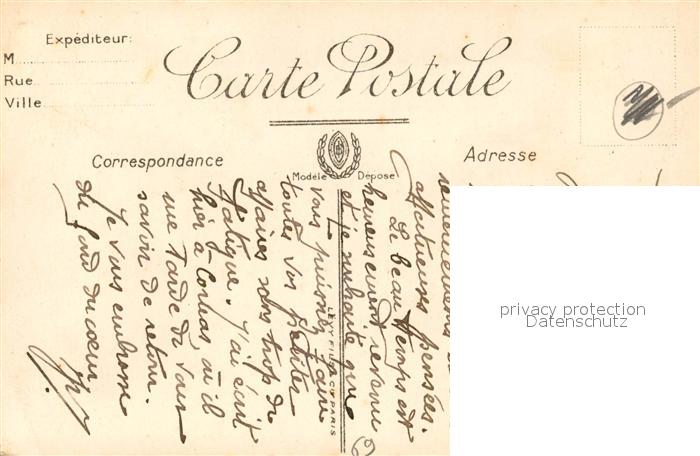 Expéditeur:
M
Rue
Ville
Carte Postale
Correspondance
Modèle Déposé
Adresse
LEVY FILS & Cie PARIS
affectueuses pensées.
Le beau temps est
heureusement revenu
et je souhaite que
vous puissiez faire
toutes vos petites
affaires sans trop de
fatigue. J'ai écrit
hier à Corbas, où il
me tarde de vous
savoir de retour.
Je vous embrasse
du fond du cœur
privacy protection
Datenschutz